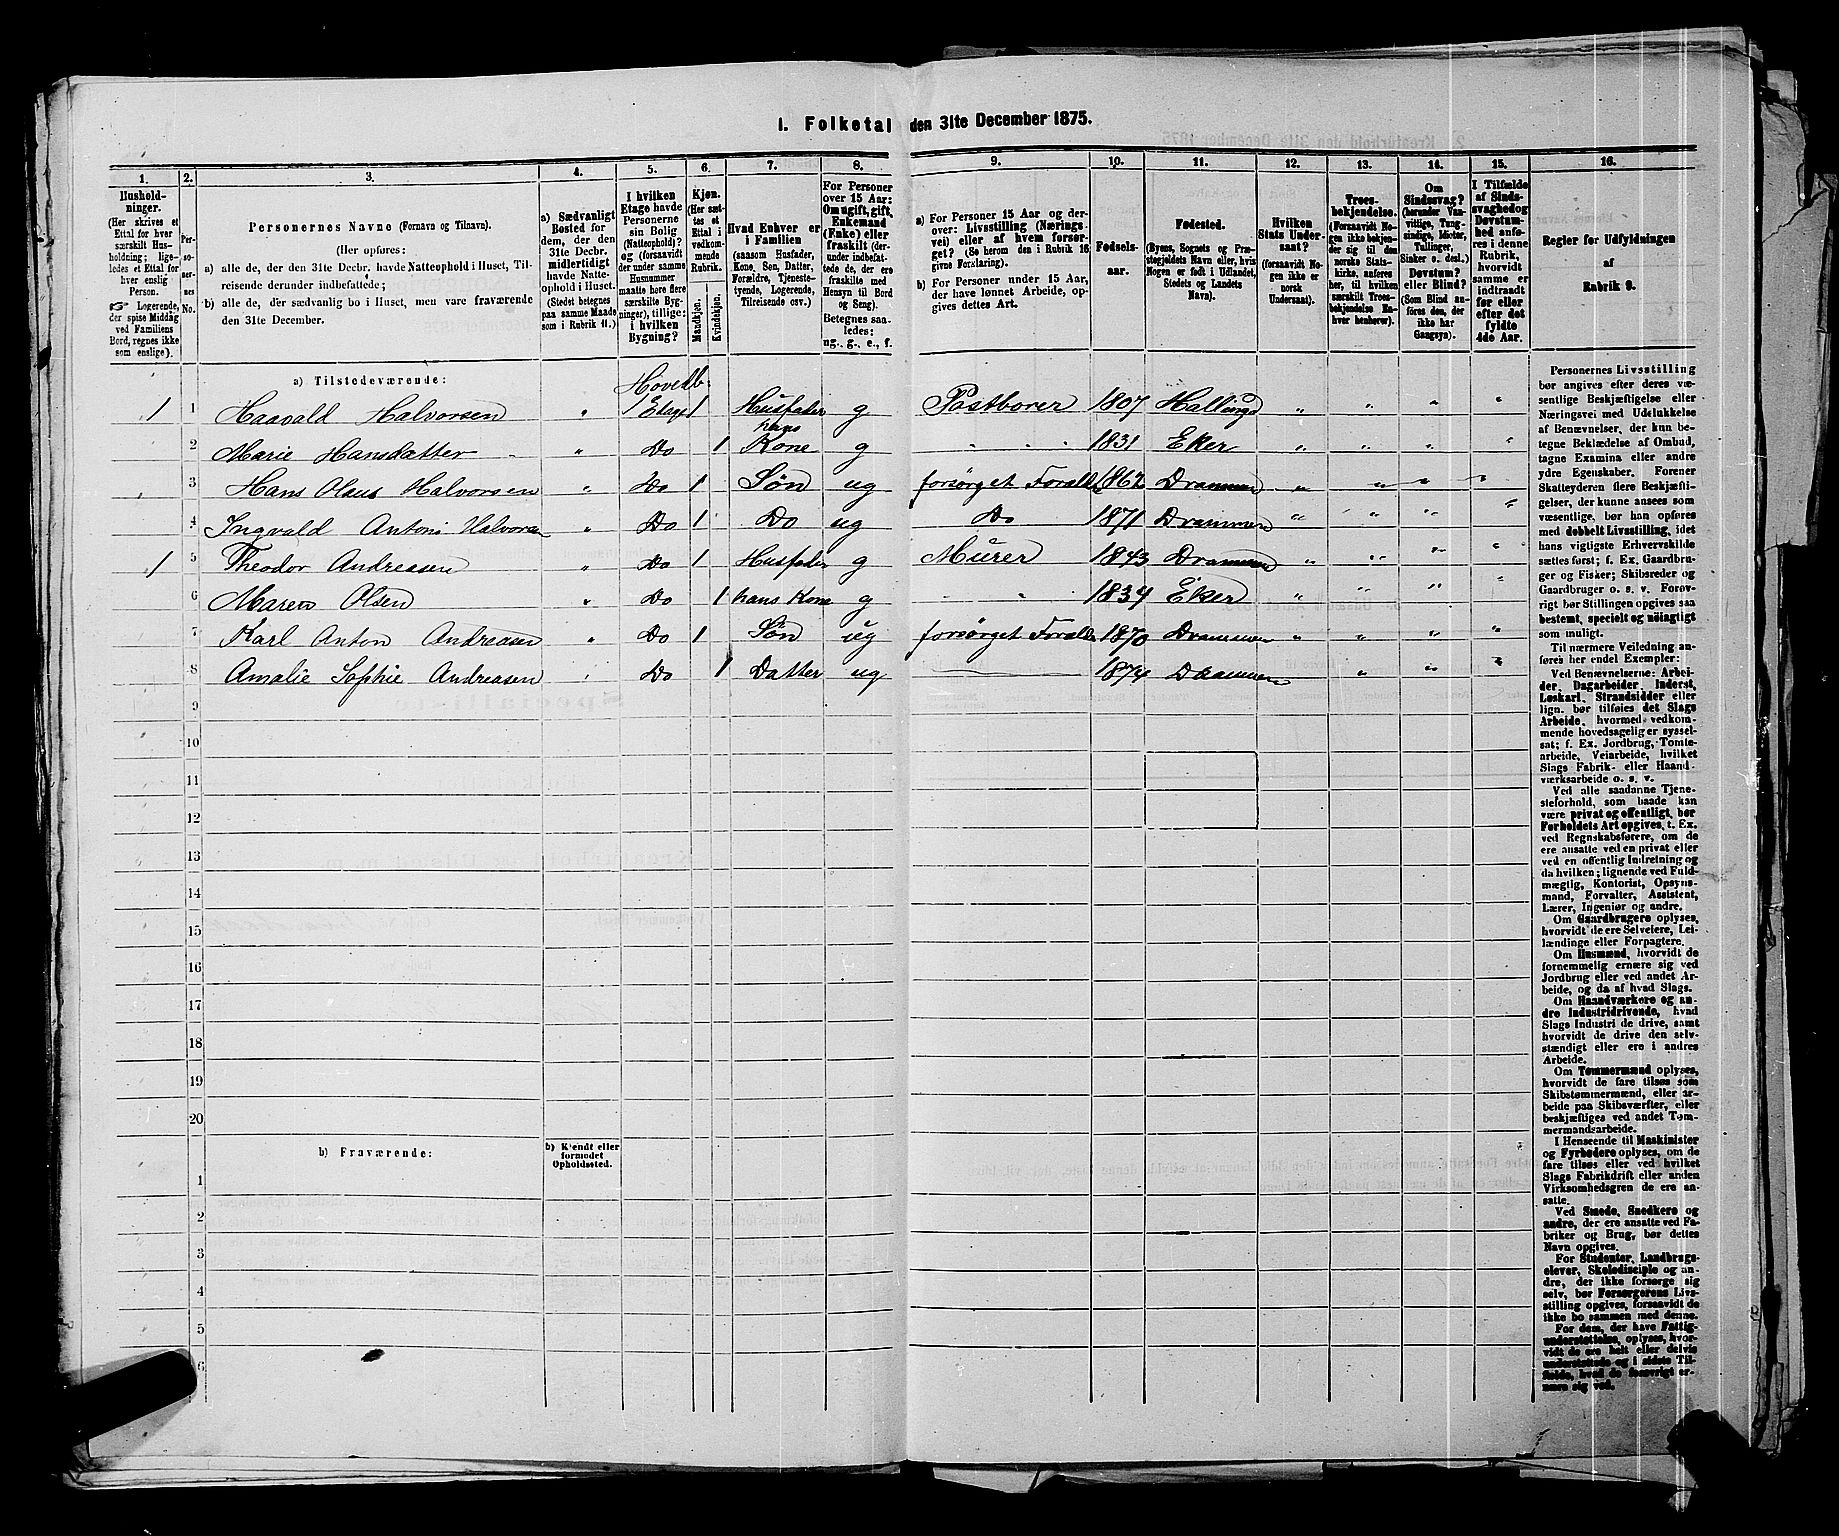 1. Folketal den 31te December 1875.
1. 2. 3. 4. 5. 6. 7. 8. 9. 10. 11. 12. 13. 14. 15. 16.
Husholdninger.
(Her skrives et
Ettal for hver
særskilt Husholdning; ligeledes et Ettal for
hver enslig
Person.
Logerende,
der spise Middag
ved Familiens
Bord, regnes ikke
som enslige).
Personernes No.
Personernes Navne (Fornavn og Tilnavn).
(Her opføres:
a) alle de, der den 31te Decbr. havde Natteophold i Huset, Tilreisende derunder indbefattede;
b) alle de, der sædvanlig bo i Huset, men vare fraværende
den 31te December.
a) Sædvanligt
Bosted for
dem, der den
31te Decbr.
midlertidigt
havde Natteophold i Huset.
(Stedet betegnes
paa samme Maade
som i Rubrik 11.)
I hvilken
Etage havde
Personerne
sin Bolig
(Natteophold)?
og (forsaavidt
der under samme
Husnummer
maatte høre flere
særskilte Bygninger), tillige:
i hvilken
Bygning?
Kjøn.
(Her sættes et
Ettal i
vedkommende
Rubrik.
Mandkjøn.
Kvindekjøn.
Hvad Enhver er
i Familien
(saasom Husfader,
Kone, Søn, Datter,
Forældre, Tjenestetyende, Logerende,
Tilreisende osv.)
For Personer
over 15 Aar:
Om ugift, gift,
Enkemand
(Enke) eller
fraskilt (derunder indbefattede de, der ere
fraskilte med
Hensyn til Bord
og Seng).
Betegnes saaledes:
ug., g., e., f.
a) For Personer 15 Aar og derover: Livsstilling (Næringsvei) eller af hvem forsørget? (Se herom den i Rubrik 16
givne Forklaring).
b) For Personer under 15 Aar,
der have lønnet Arbeide, opgives dettes Art.
Fødselsaar.
Fødested.
(Byens, Sognets og Præstegjeldets Navn eller, hvis
Nogen er født i Udlandet,
Stedets og Landets
Navn).
Hvilken
Stats Undersaat?
(forsaavidt Nogen ikke er
norsk
Undersaat).
Troesbekjendelse.
(Forsaavidt Nogen ikke bekjender sig til den
norske Statskirke, anføres
her, til hvilken
særskilt Troesbekjendelse Enhver henhører).
Om
Sindssvag?
(herunder Vanvittige, Tungsindige, Idioter,
Tullinger,
Sinker o. desl.)
Døvstum?
eller Blind?
(Som Blind anføres den, der
ikke har
Gangsyn).
I Tilfælde
af Sindssvaghed og
Døvstumhed anføres i denne
Rubrik,
hvorvidt
samme er
indtraadt
før eller
efter det
fyldte
4de Aar.
Regler for Udfyldningen
af
Rubrik 9.
a) Tilstedeværende:
Hovedb.
1 1 Haavald Halvorsen „ 1 Etage 1 Husfader g Postborer 1807 Hallingd „ „ „ „
2 Marie Hansdatter „ Do 1 hans Kone g „ „ 1831 Eker „ „ „ „
3 Hans Olaus Halvorsen „ Do 1 Søn ug forsørget Forældr 1862 Drammen „ „ „ „
4 Ingvald Anton Halvorsen „ Do 1 Do ug Do 1871 Drammen „ „ „ „
1 5 Theodor Andreasen „ Do 1 Husfader g Murer 1843 Drammen „ „ „ „
6 Maren Olsen „ Do 1 hans Kone g „ „ 1834 Eker „ „ „ „
7 Karl Anton Andreasen „ Do 1 Søn ug forsørget Forældr 1870 Drammen „ „ „ „
8 Amalie Sophie Andreasen „ Do 1 Datter ug 1874 Drammen „ „ „
9
10
11
12
13
14
15
16
17
18
19
20
b) Fraværende:
b) Kjendt eller
formodet
Opholdssted.
1
2
3
4
5
6
Personernes Livsstilling
bør angives efter deres væsentlige Beskjæftigelse eller
Næringsvei med Udelukkelse
af Benævnelser, der kun betegne Beklædelse af Ombud,
tagne Examina eller andre
ydre Egenskaber. Forener
Skatteyderen flere Beskjæftigelser, der kunne ansees som
væsentlige, bør han opføres
med dobbelt Livsstilling, idet
hans vigtigste Erhvervskilde
sættes først; f. Ex. Gaardbruger og Fisker; Skibsreder og
Gaardbruger o. s. v. Forøvrigt bør Stillingen opgives saa
bestemt, specielt og nøiagtigt
som muligt.
Til nærmere Veiledning anføres her endel Exempler:
Ved Benævnelserne: Arbeider, Dagarbeider, Inderst,
Løskarl, Strandsidder eller
lign. bør tilføies det Slags
Arbeide, hvormed vedkommende hovedsagelig er sysselsat; f. Ex. Jordbrug, Tomtearbeide, Veiarbeide, hvilket
Slags Fabrik- eller Haandværksarbeide o. s. v.
Ved alle saadanne Tjenesteforhold, som baade kan
være privat og offentligt, bør
Forholdets Art opgives, t. Ex.
ved Regnskabsførere, om de
ere ansatte ved en privat eller
ved en offentlig Indretning og
da hvilken; lignende ved Fuldmægtig, Kontorist, Opsynsmand, Forvalter, Assistent,
Lærer, Ingeniør og andre.
Om Gaardbrugere oplyses,
hvorvidt de ere Selveiere, Leilændinge eller Forpagtere.
Om Husmænd, hvorvidt de
fornemmelig ernære sig ved
Jordbrug eller ved andet Arbeide, og da af hvad Slags.
Om Haandværkere og andre Industridrivende, hvad
Slags Industri de drive, samt
hvorvidt de drive den selvstændigt eller ere i andres
Arbeide.
Om Tømmermænd oplyses,
hvorvidt de fare tilsøs som
Skibstømmermænd, eller arbeide paa Skibsværfter, eller
beskjæftiges ved andet Tømmermandsarbeide.
I Henseende til Maskinister
og Fyrbødere oplyses, om de
fare tilsøs eller ved hvilket
Slags Fabrikdrift eller anden
Virksomhedsgren de ere ansatte.
Ved Smede, Snedkere og
andre, der ere ansatte ved Fabriker og Brug, bør dettes
Navn opgives.
For Studenter, Landbrugselever, Skoledisciple og andre, der ikke forsørge sig
selv, bør Forsørgerens Livsstilling opgives, forsaavidt de
ikke bo sammen med denne.
For dem, der have Fattigunderstøttelse, oplyses, hvorvidt de ere helt eller delvis
understøttede og i sidste Tilfælde, hvad de forøvrigt ernære sig ved.